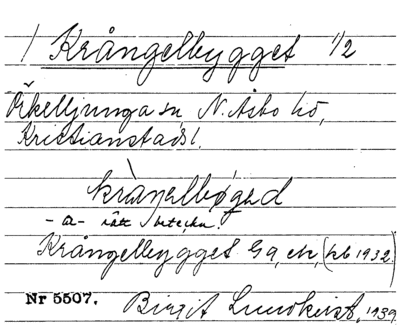 / Krångelbygget 1/2
Örkelljunga sn, N. Åsbo hd,
Kristianstads l.
kràŋelbøgəd
-a- rätt beteckn.
Krångelbygget Gg, ek, (hb 1932)
Nr 5507. Birgit Lundkvist, 1939